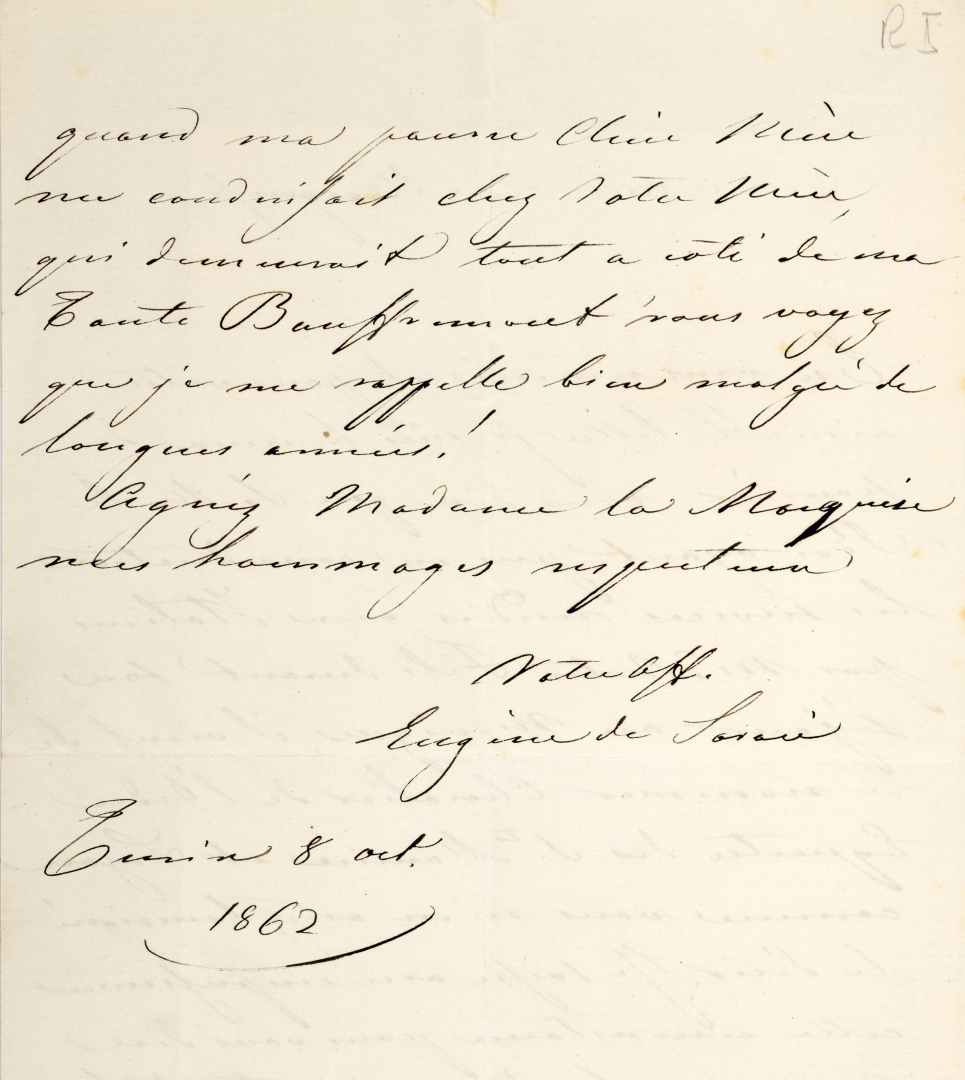 R I
quand ma pauvre Chère Mère
me conduisait chez Votre Mère,
qui demeurait tout a côté de ma
Tante Bauffremont vous voyez
que je me rappelle bien malgré de
longues années!
Agréez Madame la Marquise
mes hommages respectueux
Votre aff.
Eugène de Savoie
Turin 8 oct.
1862